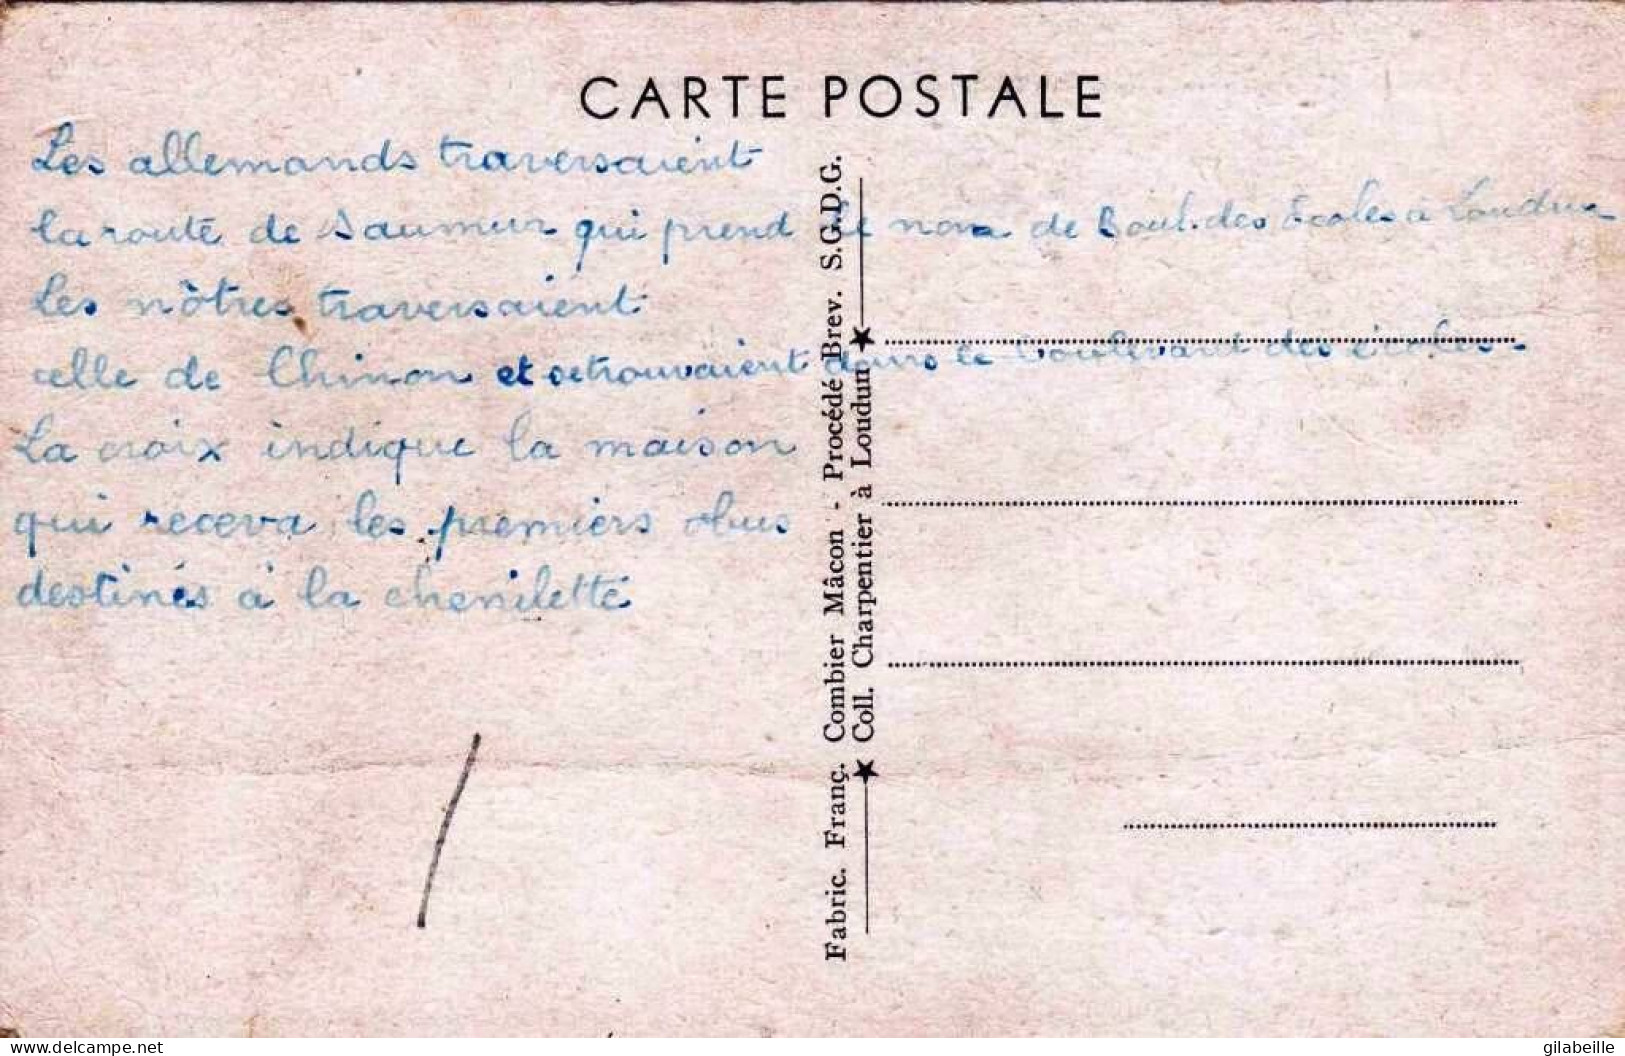 CARTE POSTALE
Les allemands traversaient
la route de Saumur qui prend le nom de Boul. des Ecoles à Loudun
Les nôtres traversaient
celle de Chinon et se trouvaient dans le boulevard des écoles.
La croix indique la maison
qui receva les premiers obus
destinés à la chenilette
Fabric. Franç. Combier Mâcon - Procédé Brev. S.G.D.G.
★ Coll. Charpentier à Loudun ★
delcampe.net
gilabeille